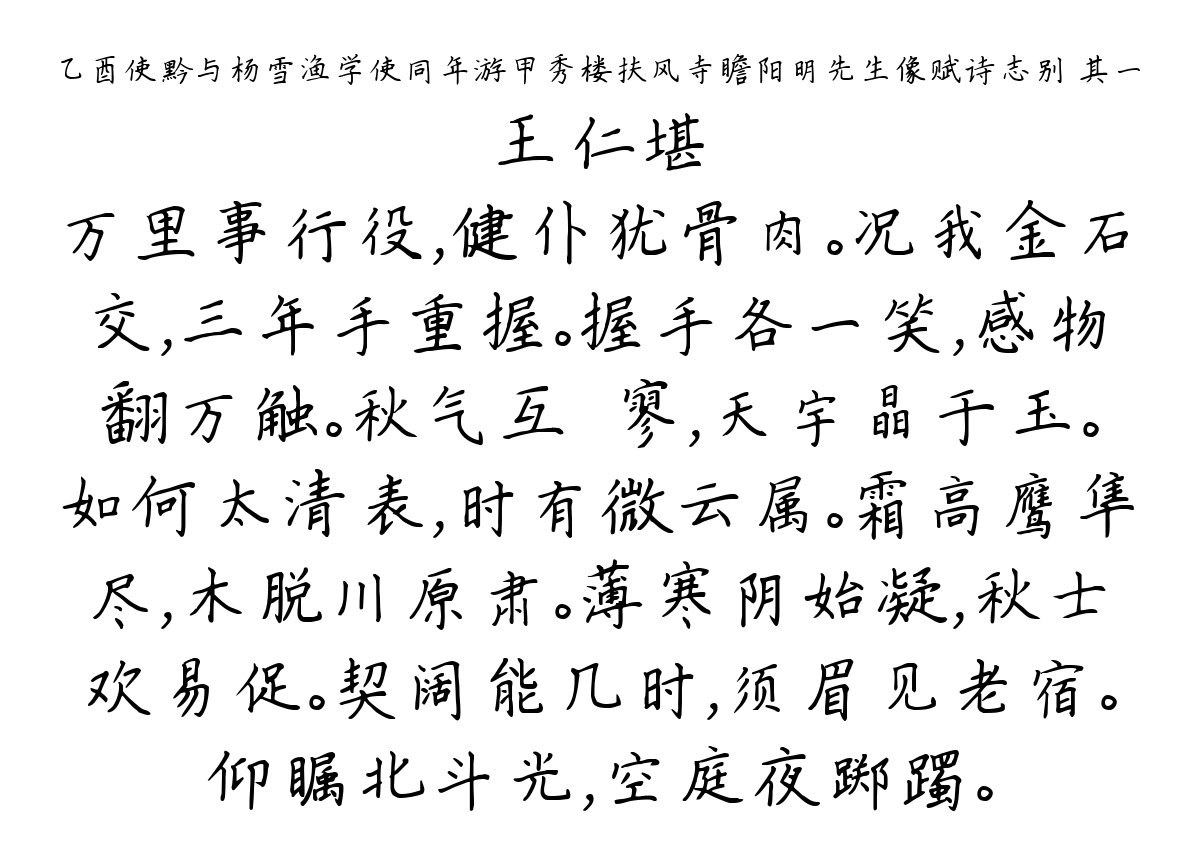 乙酉使黔与杨雪渔学使同年游甲秀楼扶风寺瞻阳明先生像赋诗志别 其一
王仁堪
万里事行役,健仆犹骨肉。况我金石
交,三年手重握。握手各一笑,感物
翻万触。秋气互 寥,天宇晶于玉。
如何太清表,时有微云属。霜高鹰隼
尽,木脱川原肃。薄寒阴始凝,秋士
欢易促。契阔能几时,须眉见老宿。
仰瞩北斗光,空庭夜踯躅。